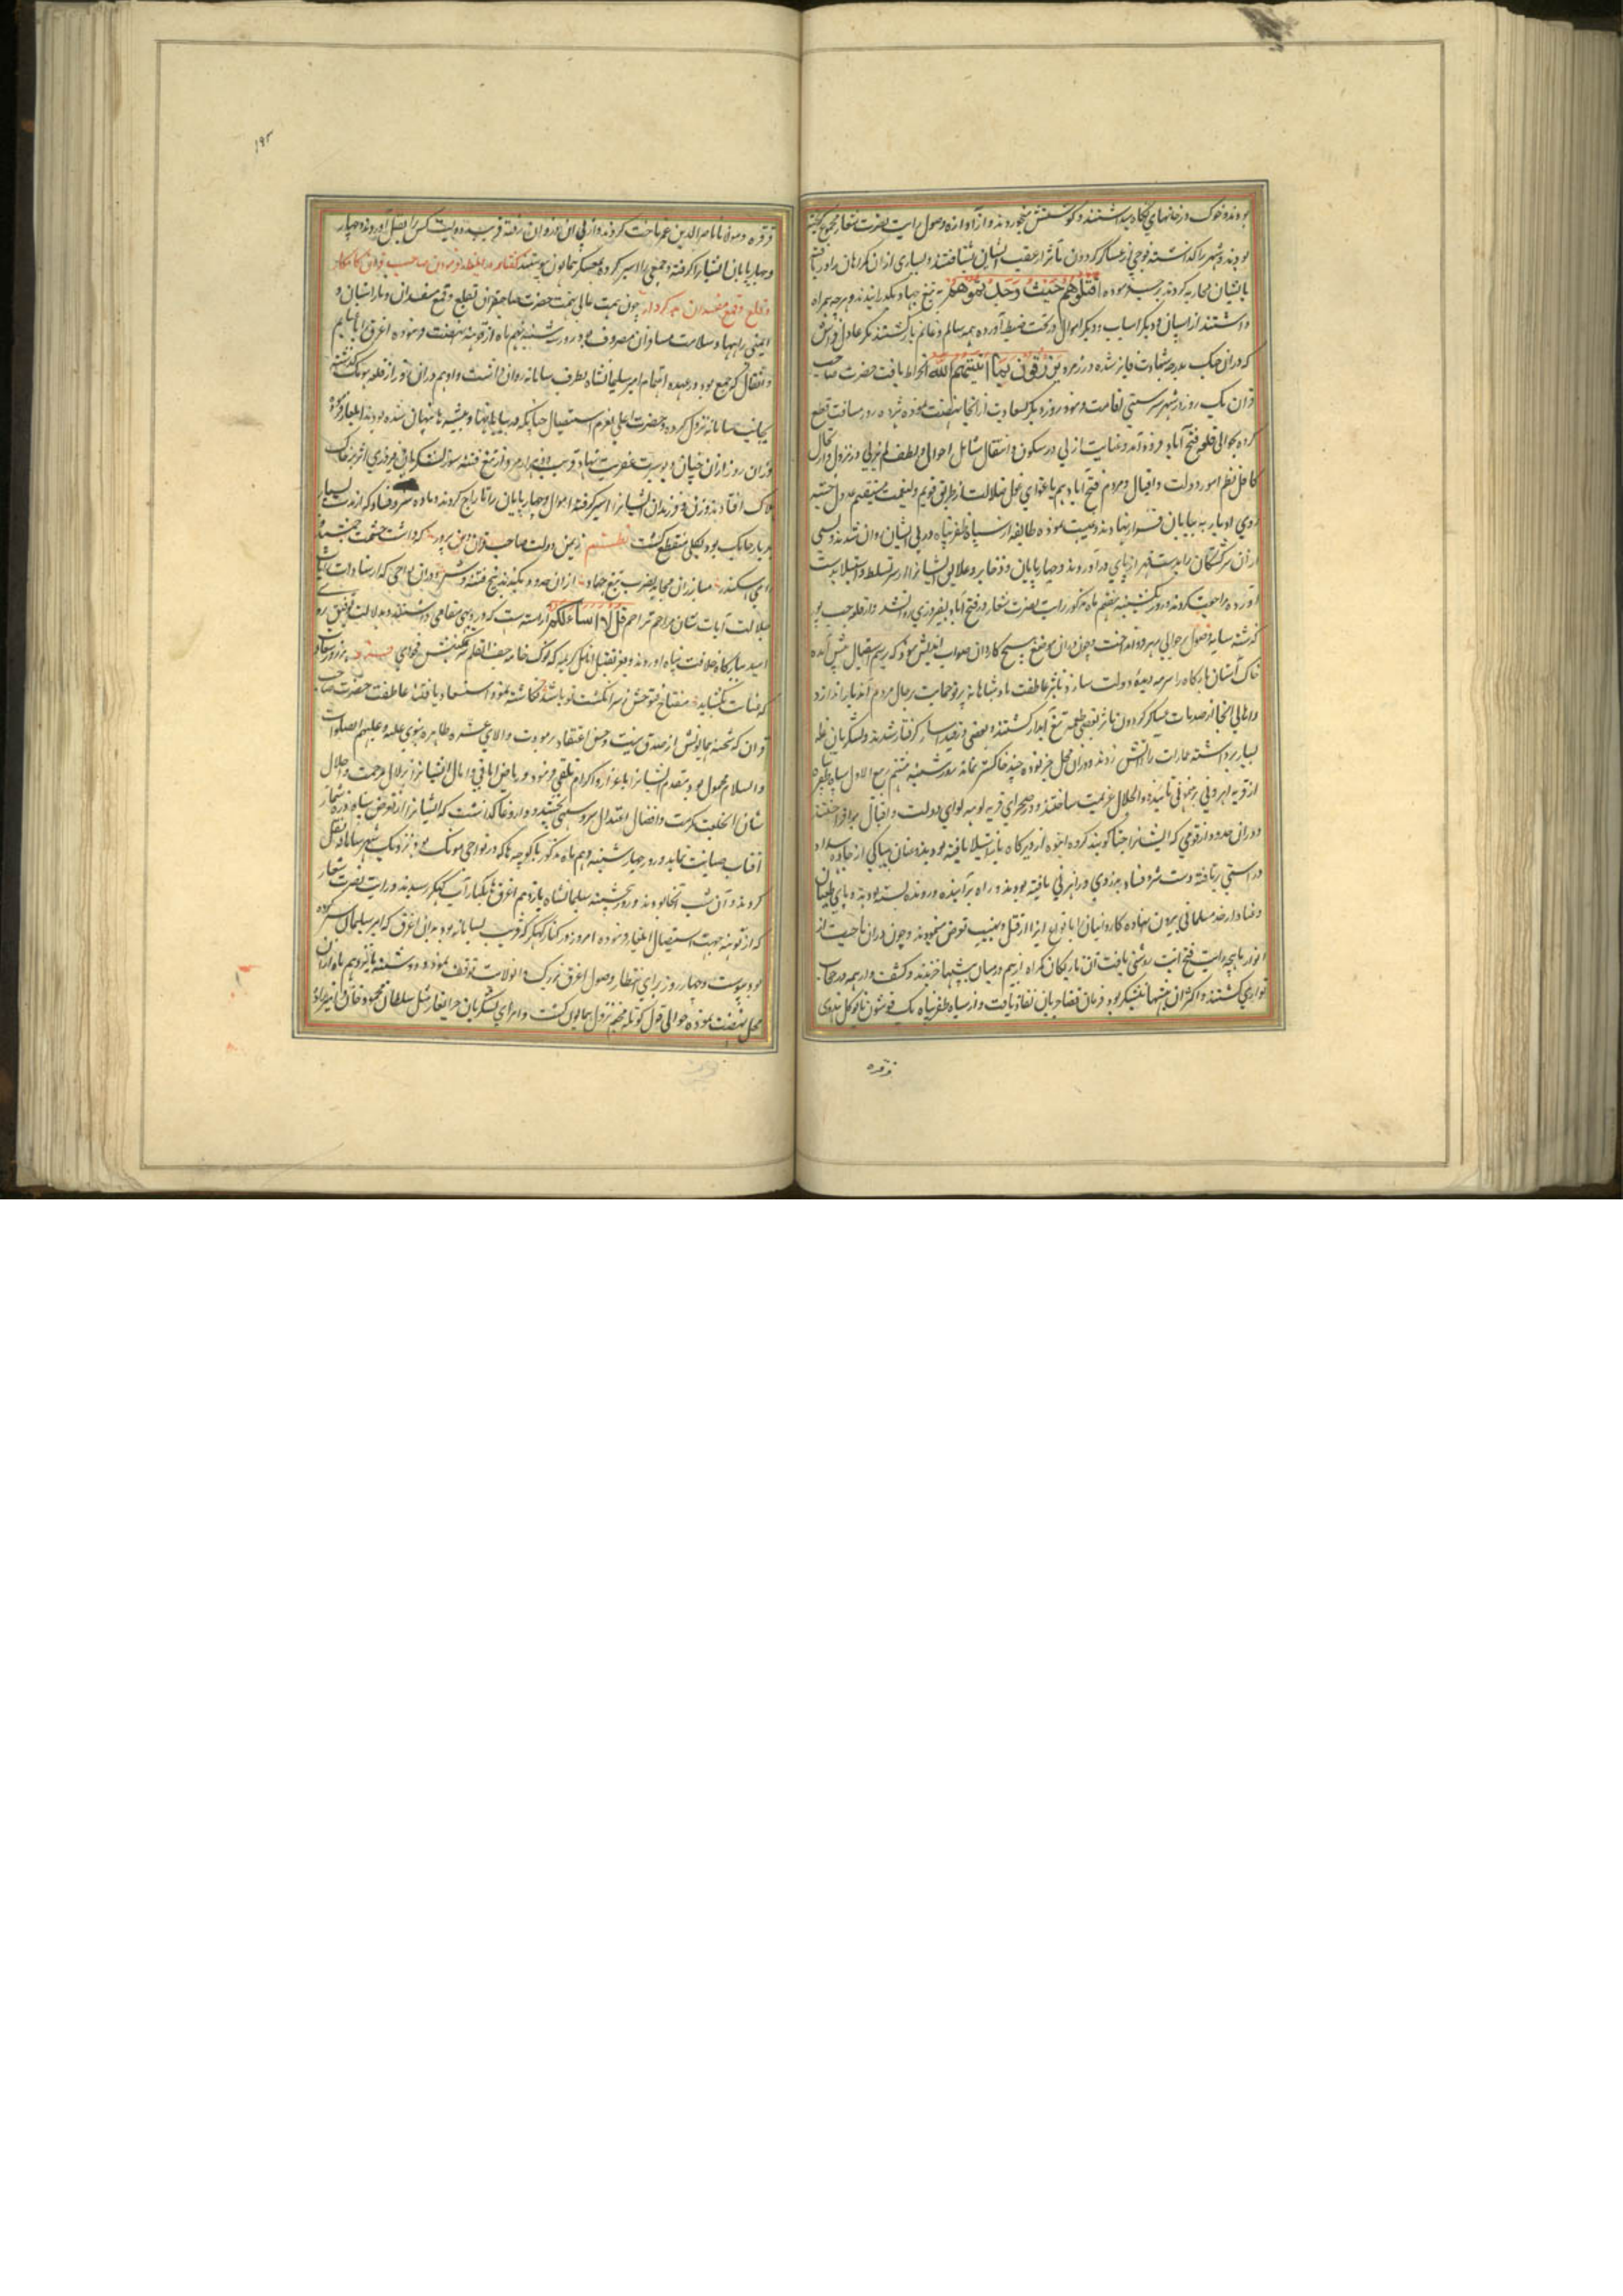 بودند و خوک در خانهای نگاه میداشتند و گوشتش میخوردند و از آوازه وصول رایت نصرت شعار مجموع گریخته
بودند و شهر را گذاشته فوجی از عساکر گردون مآثر از عقب ایشان بشتافتند و بسیاری از ان گمراهان را دریافته
با ایشان محاربه کردند بر حسب فرموده اقتلوهم حیث وجدتموهم به تیغ جهاد بگذرانیدند و هرچه همراه
داشتند از اسپان و دیگر اسباب و دیگر اموال در تحت ضبط آورده همه سالم و غانم بازگشتند مگر عادل فراش
که در ان جنگ بدرجه شهادت فایز شده در زمره یرزقون بما آتیهم الله انخراط یافت حضرت صاحب
قران یک روز در شهر سرستی اقامت فرمود روز دیگر بسعادت از انجا نهضت نموده هژده روز مسافت قطع
کرده بحوالی قلعه فتح آباد فرود آمد و عنایت ازلی در سکون و انتقال شامل احوال و لطف لم یزلی در نزول و ارتحال
کافل نظم امور دولت و اقبال و مردم فتح آباد هم باغوای غول ضلالت از طریق قویم و نعمت مستقیم عدول جسته
روی ادبار به بیابان فرار نهادند و هیبت نموده طایفه از سپاه ظفرپناه در پی ایشان روان شدند و بسی
از ان سرگشتگان را بدست قهر از پای در آوردند و چهارپایان و ذخایر و علایق ایشانرا از سر تسلط و استیلا بدست
آورده مراجعت کردند و روز یکشنبه هفتم ماه مذکور رایت نصرت شعار از فتح آباد بفیروزی روان شد و از قلعه رجب پور
گذشته سایه وصول بر حوالی اهرونی انداخت و چون در ان موضع هیچ کاردان صواب اندیش نبود که برسم استقبال پیش آمده
خاک آستان بارگاه را سرمه دیده دولت سازد و بتاثیر عاطفت پادشاهانه پرتو حمایت بر حال مردم آن دیار اندازد
و اهالی انجا از صدمات عساکر گردون مآثر بعضی طعمه تیغ آبدار گشتند و بعضی در قید اسار گرفتار شدند و لشکریان غله
بسیار برداشته عمارات را آتش زدند و در ان محل جز توده چند خاکستر نماند روز شنبه هشتم ربیع الاول سپاه ظفرپناه
از قریه اهرونی برهنمونی تایید ذو الجلال عزیمت ساختند و در صحرای قریه توهنه لوای دولت و اقبال برافراختند
و در ان حدود از قومی که ایشانرا جتان گویند گروه انبوه از دیرگاه باز استیلا یافته بودند و عنان بیباکی از جاده سداد
و راستی برتافته دست شر و فساد به دزدی و راهزنی یافته بودند و راه بر آینده و رونده بسته بودند و پای طغیان
و عناد از حد مسلمانی بیرون نهاده کاروانیان را بانواع ایذا از قتل و نهب تعرض مینمودند و چون در ان ناحیت از
انوار ماهچه رایت فتح آیت روشنی یافت آن تاریکان گمراه از بیم در میان بیشها خزیدند و کشف وار همه در حجاب
تواری گشتند و اکثر ان بیشها نیشکر بود فرمان قضا جریان نفاذ یافت و از سپاه ظفرپناه یک قوشون با توکل هندوی
قرقره
۱۹۲
قرقره و مولانا ناصر الدین عمر تاخت کردند و از پی آن دزدان رفته قریب دویست کس را بقتل آوردند و چهار
و چهارپایان ایشانرا گرفته و جمعی را اسیر کرده بمعسکر همایون پیوستند گفتار در ایلغار فرمودن صاحب قران کامکار
و قلع و قمع مفسدان بدکردار چون همت عالی نهمت حضرت صاحبقران بقلع و قمع مفسدان و بارانیان و
ایمنی راهها و سلامت مسافران مصروف بود روز سه شنبه نهم ماه از توهنه نهضت فرموده اغرق را با غنایم
و اثقال که جمع بود در عهده اهتمام امیر سلیمانشاه بطرف سامانه روان داشت و او هم در ان روز از قلعه مونک گذشته
بجانب سامانه نزول کرد و حضرت اعلی بعزم استیصال جتان که در بیابانها و بیشه ها پنهان شده بودند ایلغار فرمود
و در ان روز از ان جتان دیو سیرت عفریت نهاد قریب دو هزار مرد از تیغ فتنه سوز لشکریان فیروزی اثر بر خاک
هلاک افتادند و زن و فرزندان ایشانرا اسیر گرفته اموال و چهارپایان را تاراج کردند و ماده شر و فساد که از مدت بسیار
در دیار جایگیر بود بکلی منقطع گشت نظم زیمن دولت صاحب قران دین پرور که داشت حشمت جمشید
و رای اسکندر مبارزان مجاهد بضرب تیغ جهاد از ان حدود بکندند بیخ فتنه و شر و در ان نواحی که از سادات ایشان
بدلالت آیات نشان مراحم تراحم قل لا اسالکم آراسته است که در دیهی مقامی داشتند و بدلالت توفیق رو
امید ببارگاه خلافت پناه اوردند
قران که شجنه همایونش از صدق نیت و حسن اعتقاد بر مودت و ولای عشره طاهره نبوی علیه و علیهم الصلوات
و السلام مجبول بود مقدم ایشانرا باعزاز و اکرام تلقی فرمود و ریاض امانی و آمال ایشانرا از زلال مرحمت و اجلال
شان را بخلعت مکرمت و افضال اعتدال سرو سهی بخشید و داروغا گذاشت که ایشانرا از تعرض سپاه ذره شمار
آفتاب صیانت نماید و روز چهارشنبه دهم ماه مذکور با کوچ ها که در نواحی مونک بود نزدیک شهر سامانه نقل
کردند و آن شب آنجا بودند و روز پنجشنبه سلیمانشاه یازدهم اغرق بکنار آب کهکر رسیدند و رایت نصرت شعار
که از توهنه جهت استیصال ایلغار فرموده امروز در کنار کهکر که قریب سامانه بود بدان اغرق که امیر سلیمان سر کرده
بود پیوست و چهار روز برای انتظار وصول اغرق نزدیک و الولایت توقف نمود و دوشنبه پانزدهم ماه از ان
محل نهضت نموده حوالی پول کوتله مخیم نزول همایون گشت و امرای لشکریان جوانغار مثل سلطان محمود خان و امیرزاده